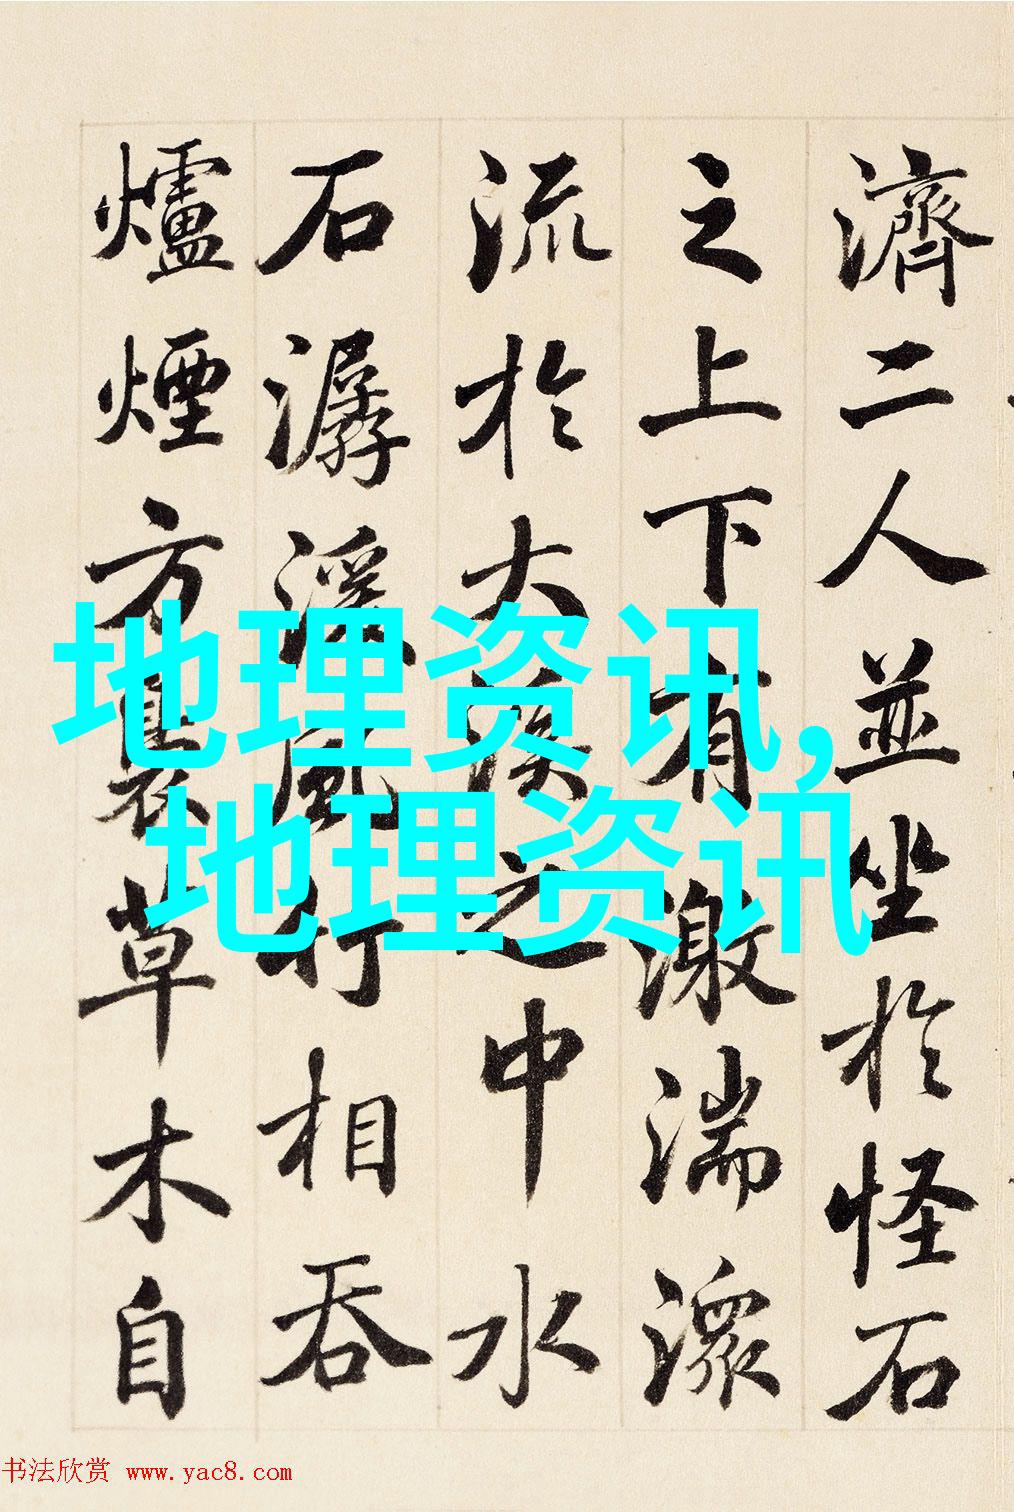 濟二人並坐於怪石
之上下有激湍潨
流於大溪之中水
石潺湲風竹相吞
爐煙方裊草木自
地理资讯,
地理资讯
书法欣赏 www.yac8.com